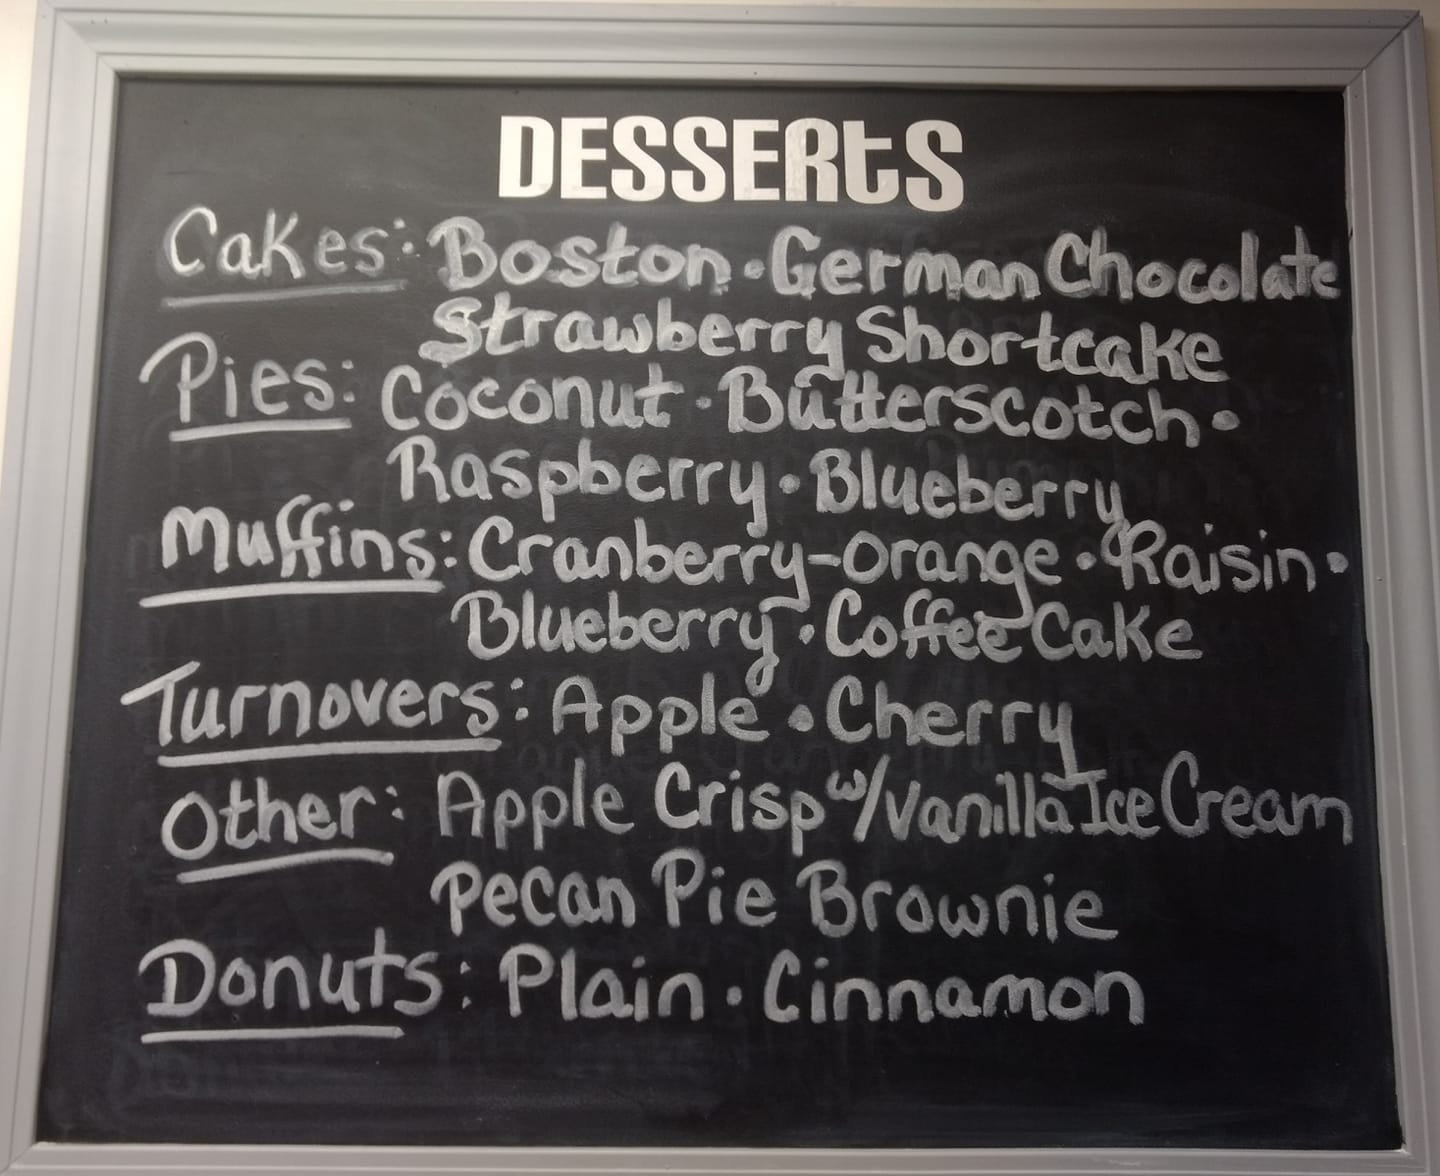 DESSERts
Cakes: Boston • German Chocolate
Strawberry Shortcake
Pies: Coconut • Butterscotch •
Raspberry • Blueberry
Muffins: Cranberry-Orange • Raisin •
Blueberry • Coffee Cake
Turnovers: Apple • Cherry
Other: Apple Crisp w/Vanilla Ice Cream
Pecan Pie Brownie
Donuts: Plain • Cinnamon